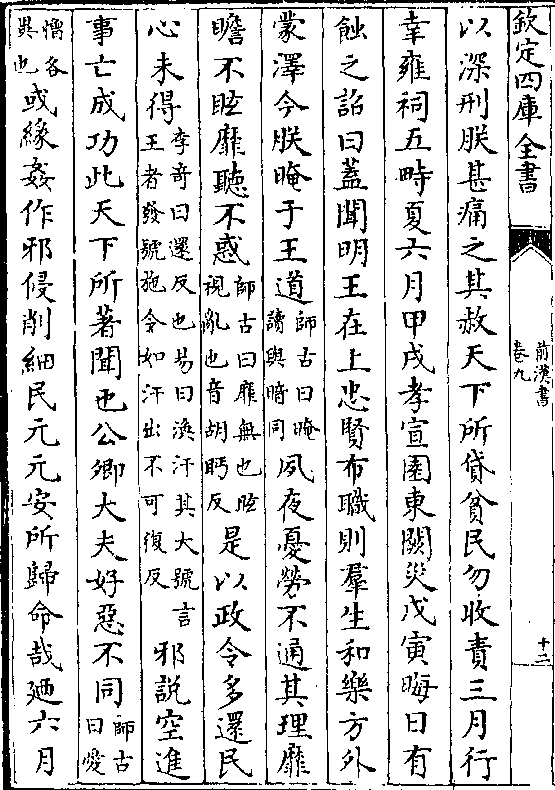 欽定四庫全書
前漢書
卷九
十二
以深刑朕甚痛之其赦天下所貸貧民勿收責三月行
幸雍祠五畤夏六月甲戌孝宣園東闕災戊寅晦日有
蝕之詔曰蓋聞明王在上忠賢布職則羣生和樂方外
蒙澤今朕晻于王道師古曰晻讀與暗同夙夜憂勞不通其理靡
瞻不眩靡聽不惑師古曰靡無也眩視亂也音胡眄反是以政令多還民
心未得李奇曰還反也易曰渙汗其大號言王者發號施令如汗出不可復反邪說空進
事亡成功此天下所著聞也公卿大夫好惡不同師古曰愛
憎各異也或緣姦作邪侵削細民元元安所歸命哉廼六月